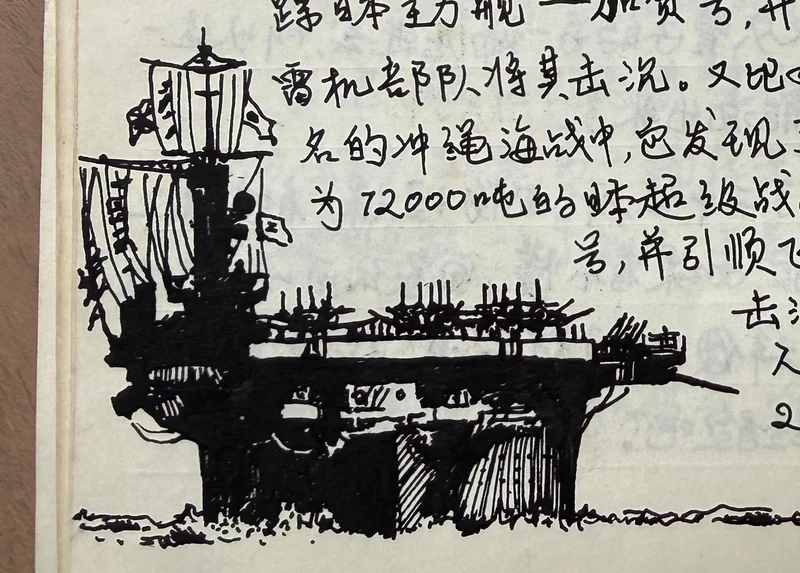 踪日本主力舰——加贺号,并
雷机部队将其击沉。又比
名的冲绳海战中,它发现
为72000吨的日本超级战
号,并引顺飞
击沉
入
2